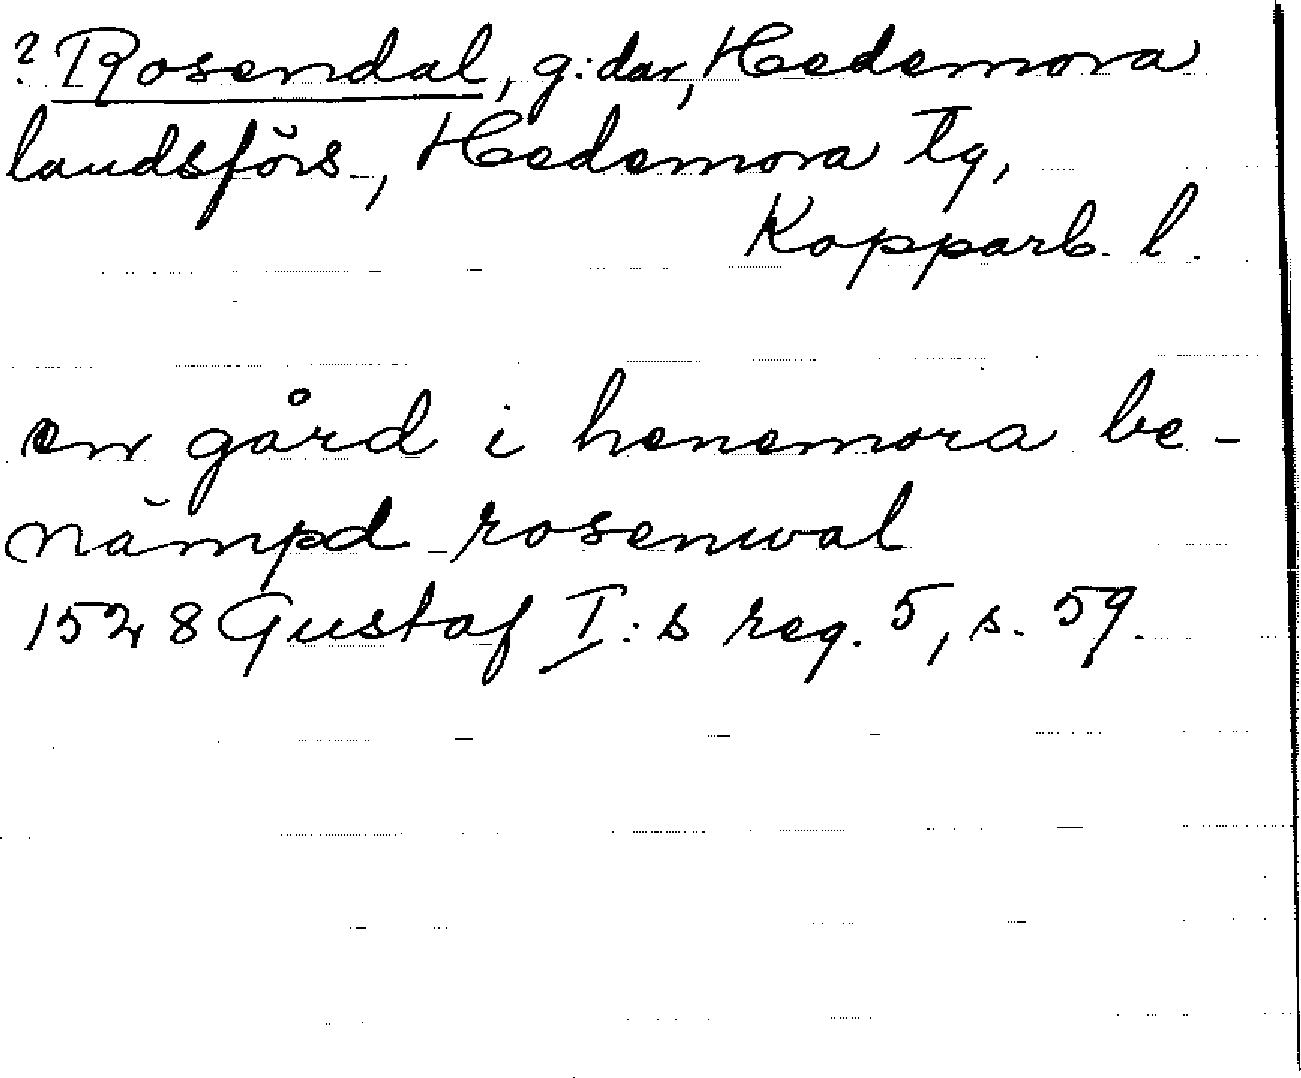 ? Rosendal, g:dar, Hedemora
landsförs., Hedemora tg,
Kopparb. l.
en gård i henemora be-
nämpd rosenwal
1528 Gustaf I:s reg. 5, s. 59.